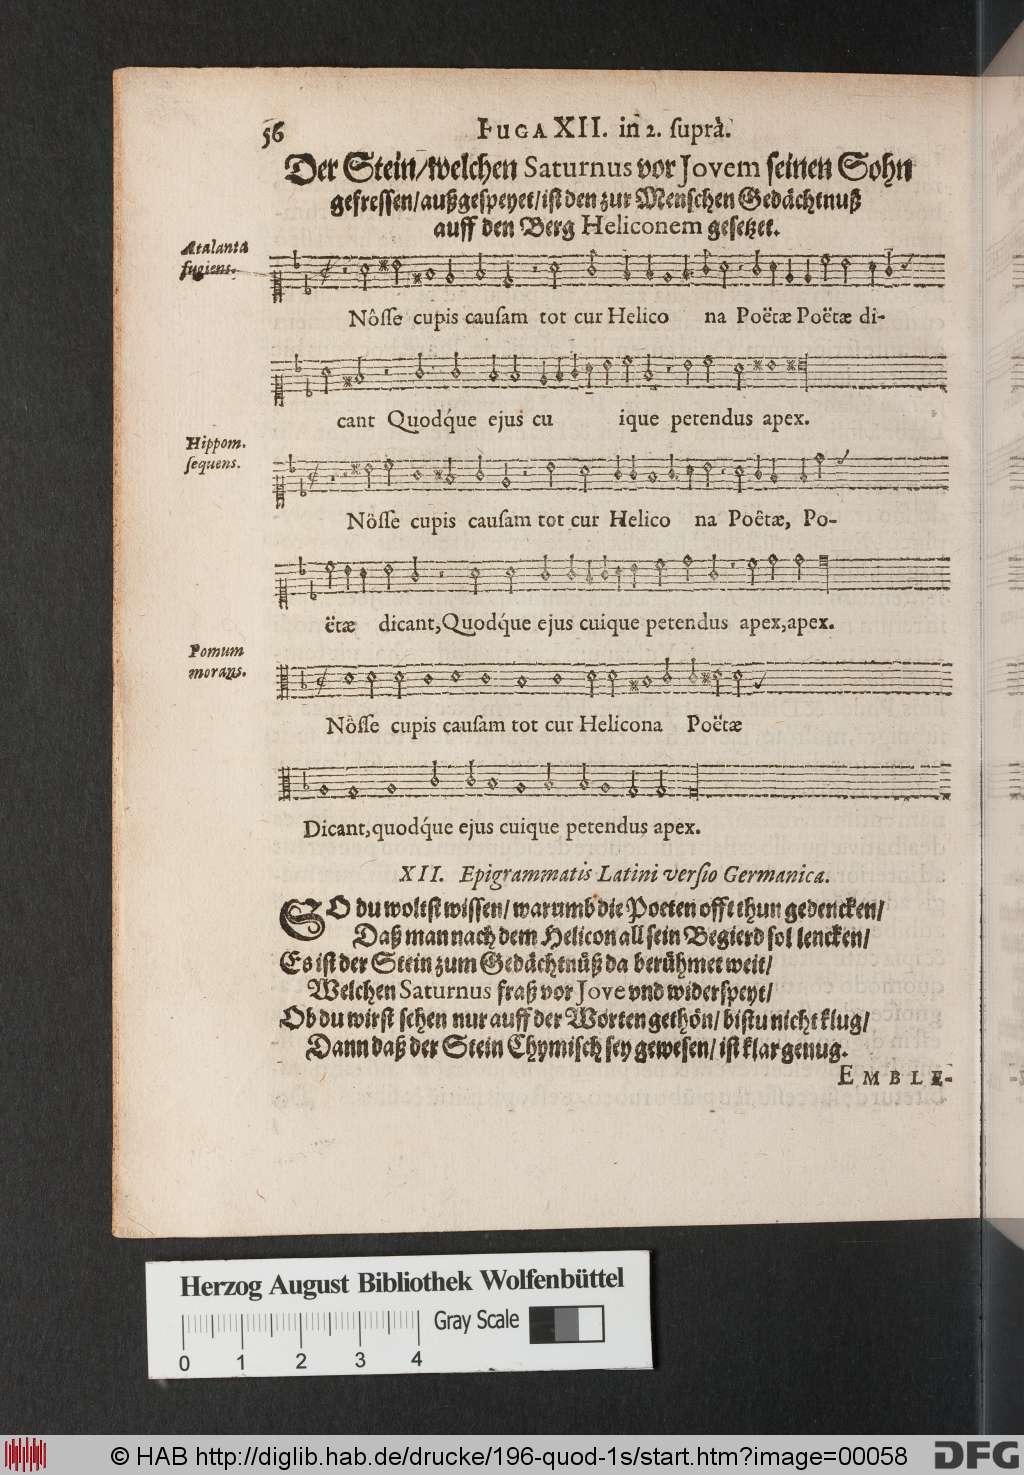 56
FUGA XII. in 2. ſuprà.
Der Stein/welchen Saturnus vor Jovem ſeinen Sohn
gefreſſen/außgeſpeyet/iſt den zur Menſchen Gedächtnuß
auff den Berg Heliconem geſetzet.
Atalanta
fugiens.
Nôſſe cupis cauſam tot cur Helico na Poëtæ Poëtæ di-
cant Quodq́ue ejus cu ique petendus apex.
Hippom.
ſequens.
Nöſſe cupis cauſam tot cur Helico na Poêtæ, Po-
ëtæ dicant,Quodq́ue ejus cuique petendus apex,apex.
Pomum
morans.
Nôſſe cupis cauſam tot cur Helicona Poëtæ
Dicant,quodq́ue ejus cuique petendus apex.
XII. Epigrammatis Latini verſio Germanica.
SO du wolſt wiſſen/ warumb die Poeten offt thun gedencken/
Daß man nach dem Helicon all ſein Begierd ſol lencken/
Es iſt der Stein zum Gedächtnüß da berühmet weit/
Welchen Saturnus fraß vor Jove vnd widerſpeyt/
Ob du wirſt ſehen nur auff der Worten gethön/ biſtu nicht klug/
Dann daß der Stein Chymiſch ſey geweſen/ iſt klar genug.
EMBLE-
Herzog August Bibliothek Wolfenbüttel
Gray Scale
0 1 2 3 4
© HAB http://diglib.hab.de/drucke/196-quod-1s/start.htm?image=00058
DFG